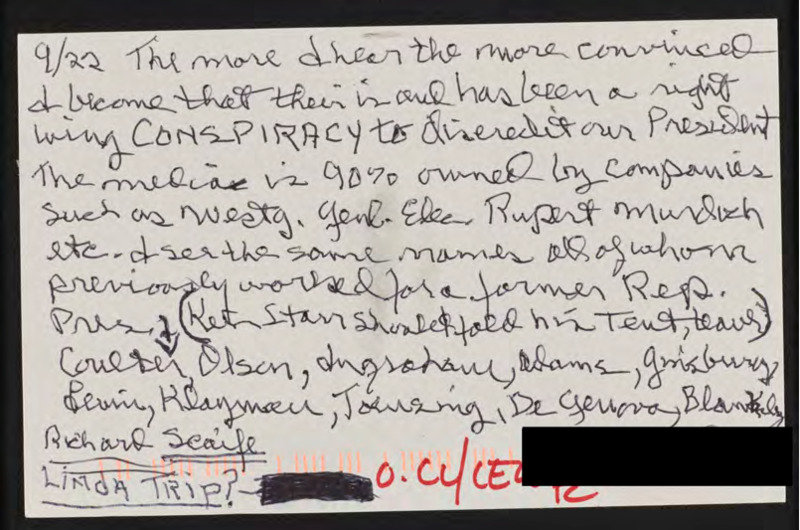 9/22 The more I hear the more convinced
I become that their is and has been a right
wing CONSPIRACY to discredit our President
The media is 90% owned by companies
such as Westg. Genl. Elec. Rupert Murdoch
etc. I see the same names all of whom
previously worked for a former Rep.
Pres. (Ken Starr should fold his Tent, leave)
Coulter, Olson, Ingraham, Adams, Ginsburg,
Levin, Klayman, Toensing, De Genova, Blankly
Richard Scaife
LINDA TRIP?-
O.CL/